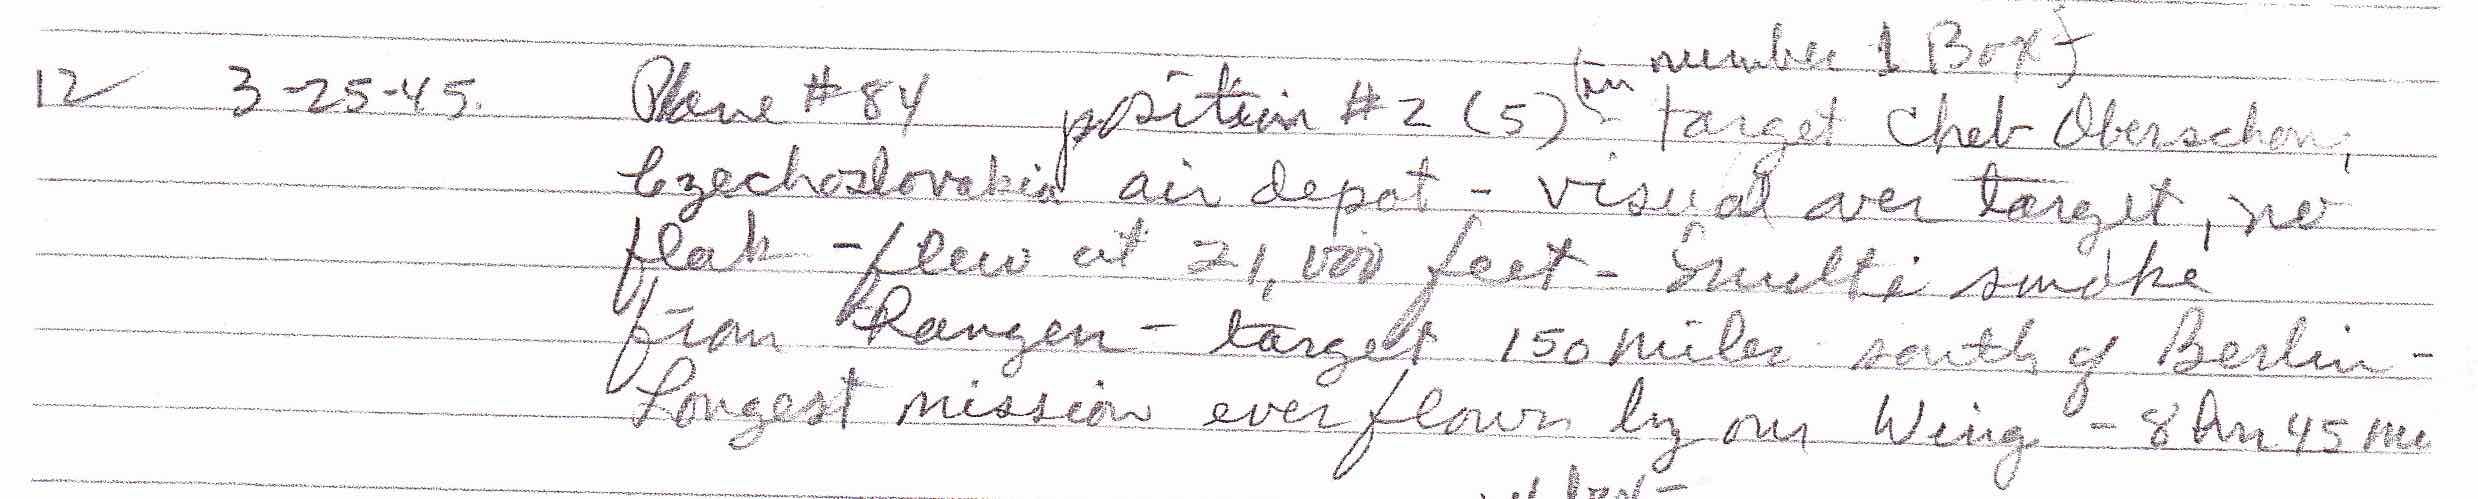 (in number 1 Box)
12 3-25-45. Plane #84 position #2 (5) - target Cheb Oberschon,
Czechoslovakia air depot - visual over target, no
flak - flew at 21,000 feet - smoke
from - target 150 miles south of Berlin -
Longest mission ever flown by our Wing - 8 hr 45 mi